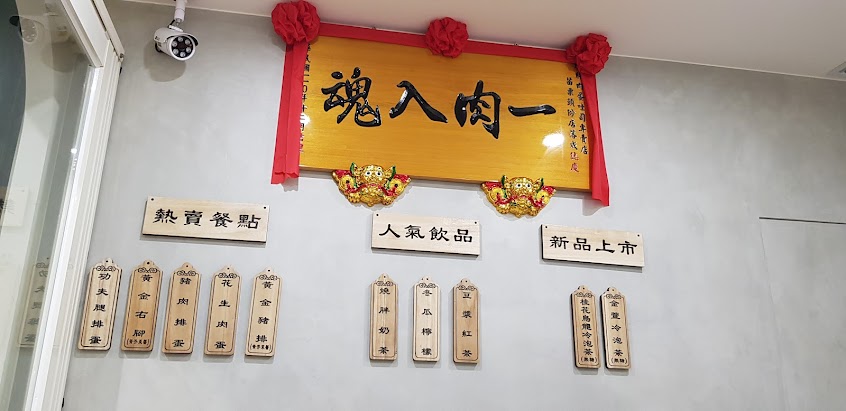 一肉入魂
苗栗頭份店落成誌慶
熱賣餐點
功夫腿排蛋
黃金右腳
豬肉排蛋
花生肉蛋
黃金豬排
人氣飲品
燒胖奶茶
冬瓜檸檬
豆漿紅茶
新品上市
桂花烏龍冷泡茶(無糖)
金萱冷泡茶(無糖)